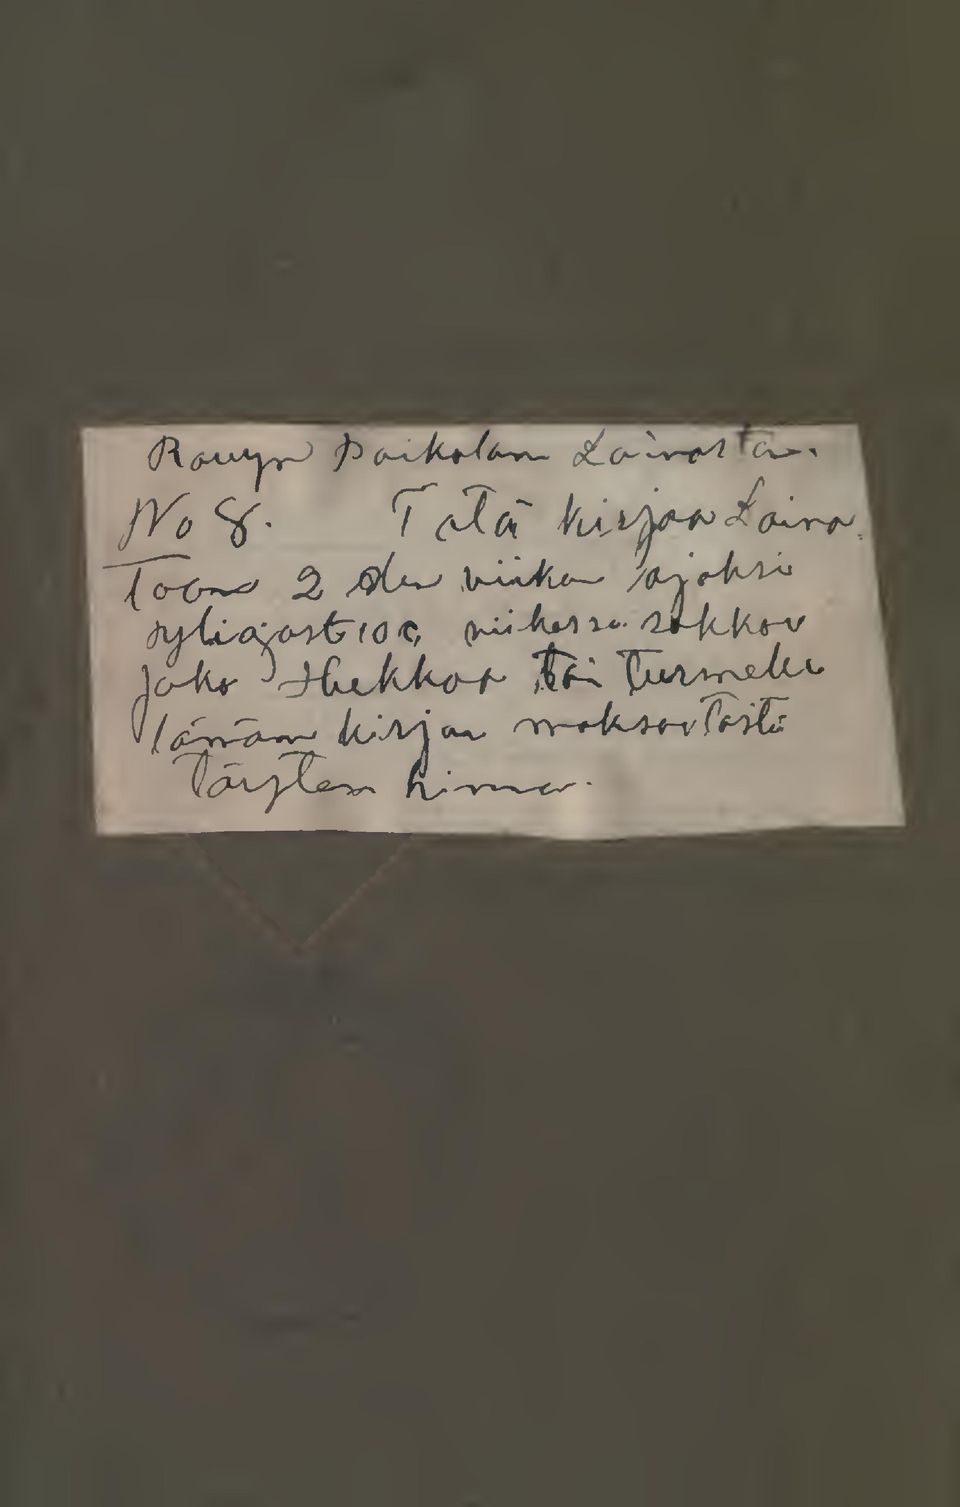 Rauyn Paikolan Lainasta.
No 8. Tätä kirjaa Laina
Taan 2 den viikon ajaksi
yliajast 10 c, viikossa sakkoa
joka Hukkaa tai Turmelee
Tämän kirjan maksaa Tästä
Täyten hinna.